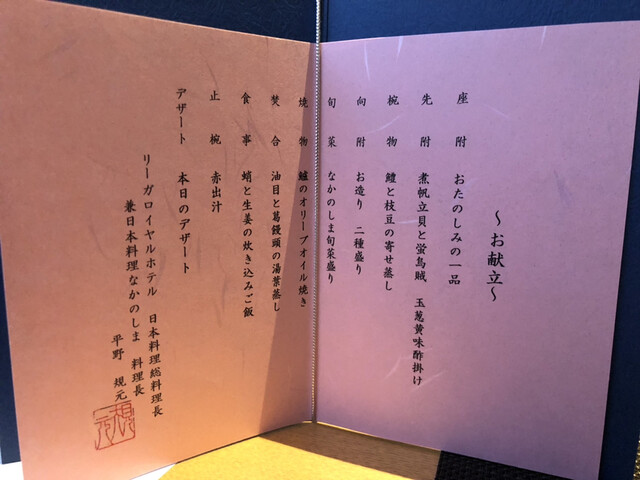 ～お献立～
座附 おたのしみの一品
先附 煮帆立貝と蛍烏賊 玉葱黄味酢掛け
椀物 鱧と枝豆の寄せ蒸し
向附 お造り 二種盛り
旬菜 なかのしま旬菜盛り
焼物 鱸のオリーブオイル焼き
焚合 油目と葛饅頭の湯葉蒸し
食事 蛸と生姜の炊き込みご飯
止椀 赤出汁
デザート 本日のデザート
リーガロイヤルホテル 日本料理総料理長
兼日本料理なかのしま 料理長
平野 規元